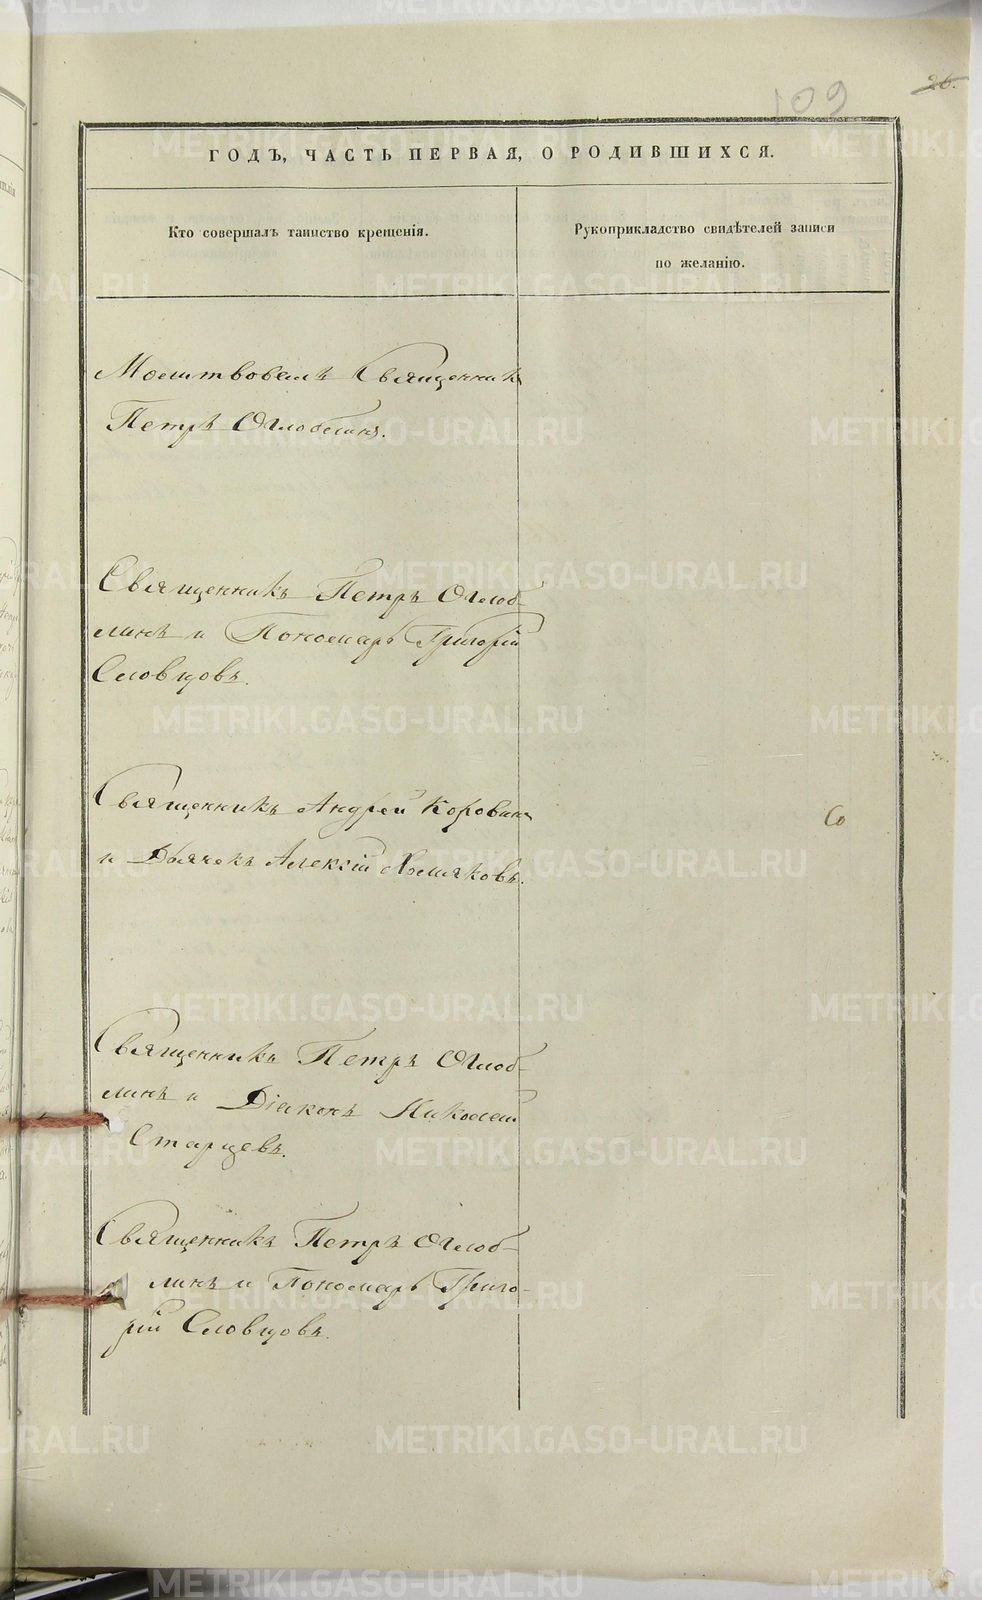 109
26.
ГОДЪ, ЧАСТЬ ПЕРВАЯ, О РОДИВШИХСЯ.
Кто совершалъ таинство крещенія.
Рукоприкладство свидѣтелей записи
по желанію.
Молитвовалъ Священникъ
Петръ Оглоблинъ.
Священникъ Петръ Оглоб-
линъ и Пономарь Григорій
Словцовъ.
Священникъ Андрей Коровинъ
и Дьячекъ Алексій Хомяковъ.
Со
Священникъ Петръ Оглоб-
линъ и Діаконъ Николай
Старцевъ.
Священникъ Петръ Оглоб-
линъ и Пономарь Григо-
рій Словцовъ.
METRIKI.GASO-URAL.RU